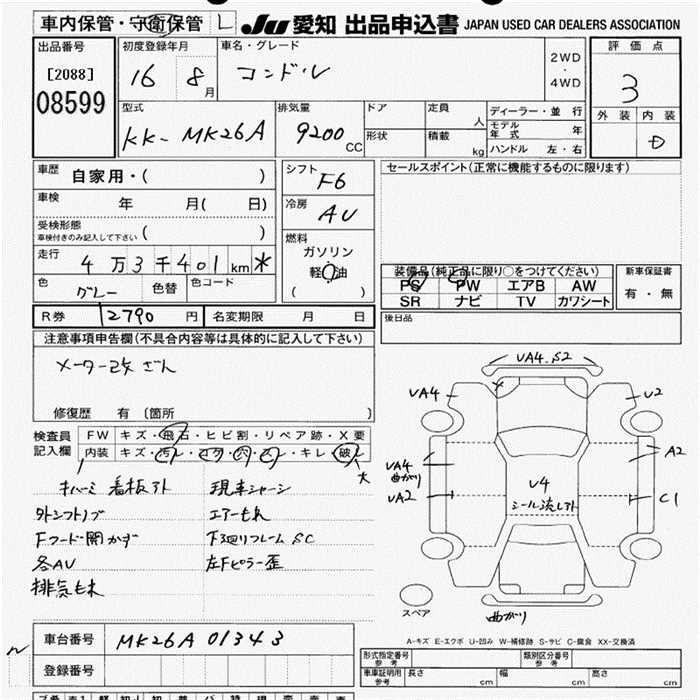 車内保管・守衛保管 L JU 愛知 出品申込書 JAPAN USED CAR DEALERS ASSOCIATION
出品番号 初度登録年月 車名・グレード 評価点
[2088] 16 8月 コンドル 2WD・4WD 3
08599
型式 排気量 ドア 定員 人 ディーラー・並行 外装 内装
KK-MK26A 9200 CC 形状 積載 kg モデル年式 年 D
ハンドル 左・右
車歴 自家用・( ) シフト F6 セールスポイント(正常に機能するものに限ります)
車検 年 月( 日) 冷房 AC
受検形態
車検付きのみ記入して下さい ( ) 燃料
走行 4万3千401km* ガソリン
軽油
( )
装備品(純正品に限り○をつけてください) 新車保証書
色 グレー 色替 色コード PS PW エアB AW 有・無
SR ナビ TV カワシート
R券 12790円 名変期限 月 日 後日品
注意事項申告欄(不具合内容等は具体的に記入して下さい)
メーター改ざん
修復歴 有 〔箇所 〕
検査員記入欄 FW キズ・飛石・ヒビ割・リペア跡・X要
内装 キズ・汚レ・コゲ・穴・スレ・キレ・破レ 大
看板アト 現車シャーシ
外シフトノブ エアーもれ
Fフード開かず 下廻りフレームSC
各AU 左Fピラー歪
排気もれ
UA4.S2
UA4 U2
A2
UA4
曲がり U4
UA2 シール流しアト C1
スペア 曲がり
A-キズ E-エクボ U-凹み W-補修跡 S-サビ C-腐食 XX-交換済
車台番号 MK26A 01343
登録番号
形式指定番号 参考 類別区分番号 参考
車車証明用 参考 長さ cm 幅 cm 高さ cm